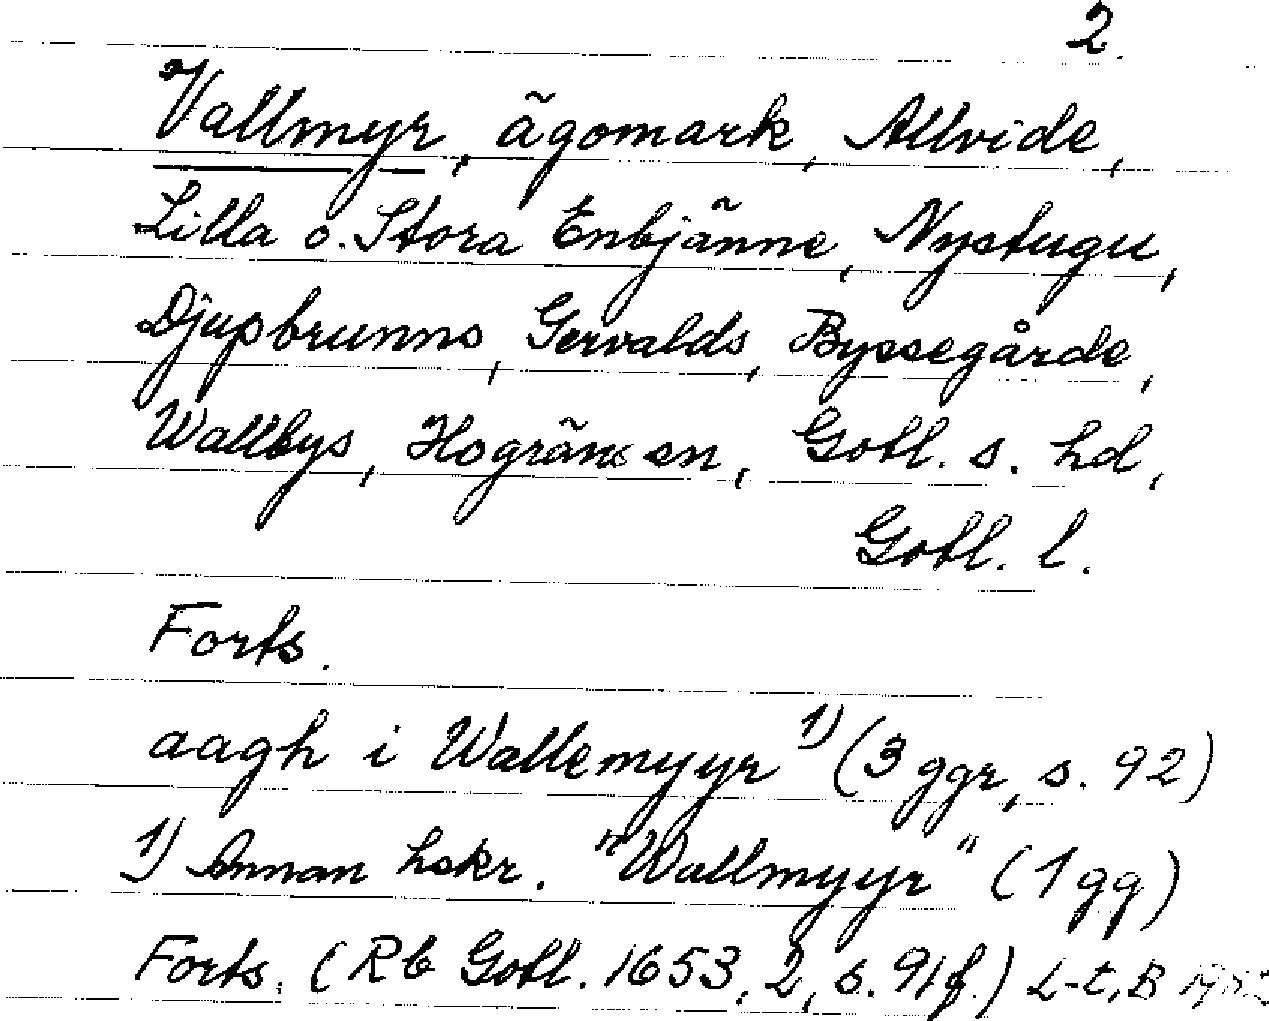 2.
Vallmyr, ägomark, Allvide,
Lilla o. Stora Enbjänne, Nystugu,
Djupbrunns, Gervalds, Byssegårde,
Wallbys, Hogräns sn, Gotl. s. hd,
Gotl. l.
Forts.
aagh i Wallemyyr 1) (3 ggr, s. 92)
1) Annan hskr. "Wallmyyr" (1 gg)
Forts. (Rb Gotl. 1653, 2, s. 91f.) L-t, B